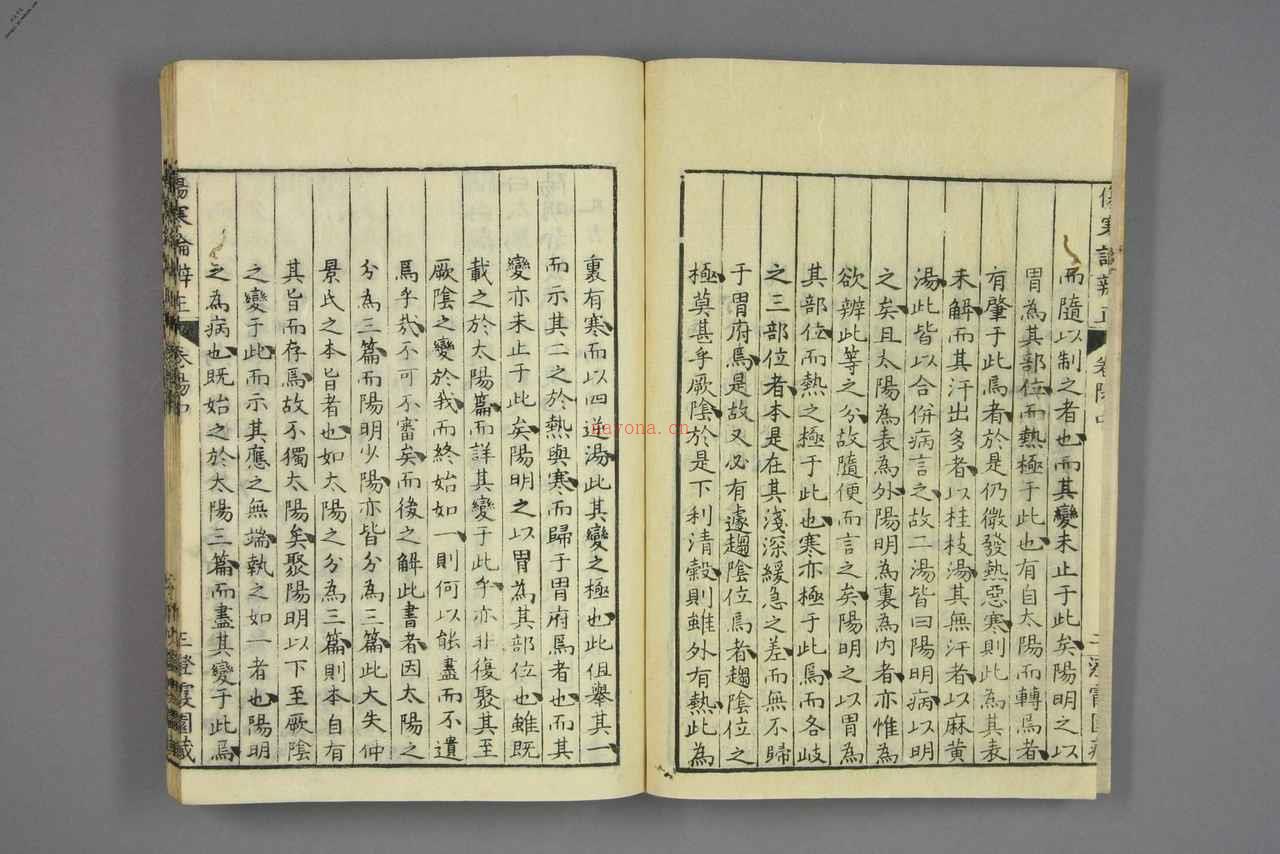 而隨以制之者也而其變未止于此矣陽明之以
胃為其部位而熱極于此也有自太陽而轉焉者
有肇于此焉者於是仍微發熱惡寒則此為其表
未解而其汗出多者以桂枝湯其無汗者以麻黃
湯此皆以合併病言之故二湯皆曰陽明病以明
之矣且太陽為表為外陽明為裏為內者亦惟為
欲辨此等之分故隨便而言之矣陽明之以胃為
其部位而熱之極于此也寒亦極于此焉而各歧
之三部位者本是在其淺深緩急之差而無不歸
于胃府焉是故又必有遽趨陰位焉者趨陰位之
極莫甚乎厥陰於是下利清穀則雖外有熱此為
裏有寒而以四逆湯此其變之極也此但舉其一
而示其二之於熱與寒而歸于胃府焉者也而其
變亦未止于此矣陽明之以胃為其部位也雖既
載之於太陽篇而詳其變于此乎亦非復聚其至
厥陰之變於我而終始如一則何以能盡而不遺
焉乎哉不可不審矣而後之解此書者因太陽之
分為三篇而陽明少陽亦皆分為三篇此大失仲
景氏之本旨者也如太陽之分為三篇則本自有
其旨而存焉故不獨太陽矣聚陽明以下至厥陰
之變于此而示其應之無端執之如一者也陽明
之為病也既始之於太陽三篇而盡其變于此焉
傷寒論辨正
卷陽中
生生霞園藏
nayona.cn